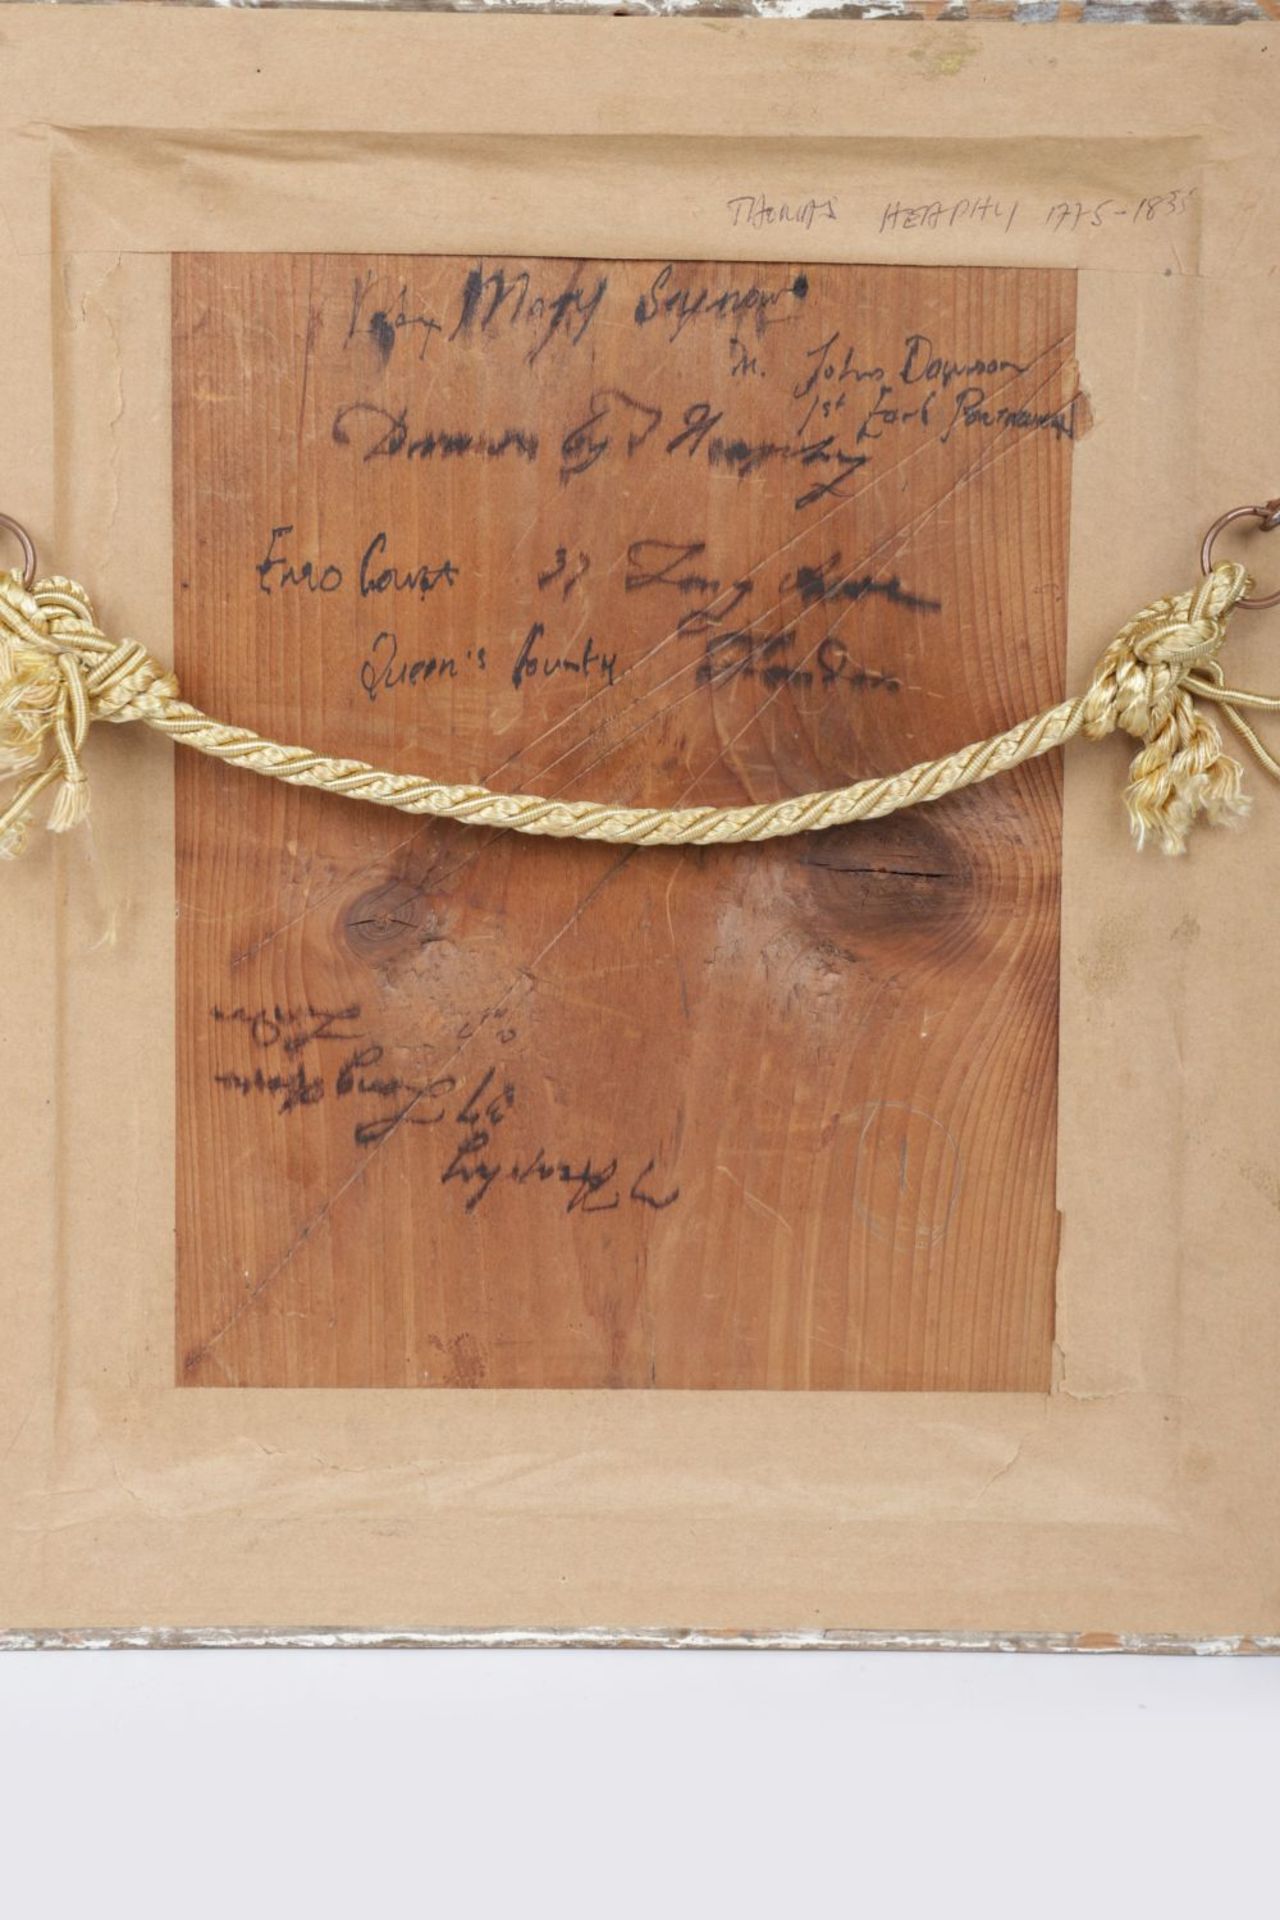 THOMAS HEAPHY 1775-1835
Lady Mary Seymour
m. John Dawson
1st Earl Portarlington
Drawn by T Heaphy
Emo Court 37 Long Acre
Queen's County London
T Heaphy
37 Long Acre
London